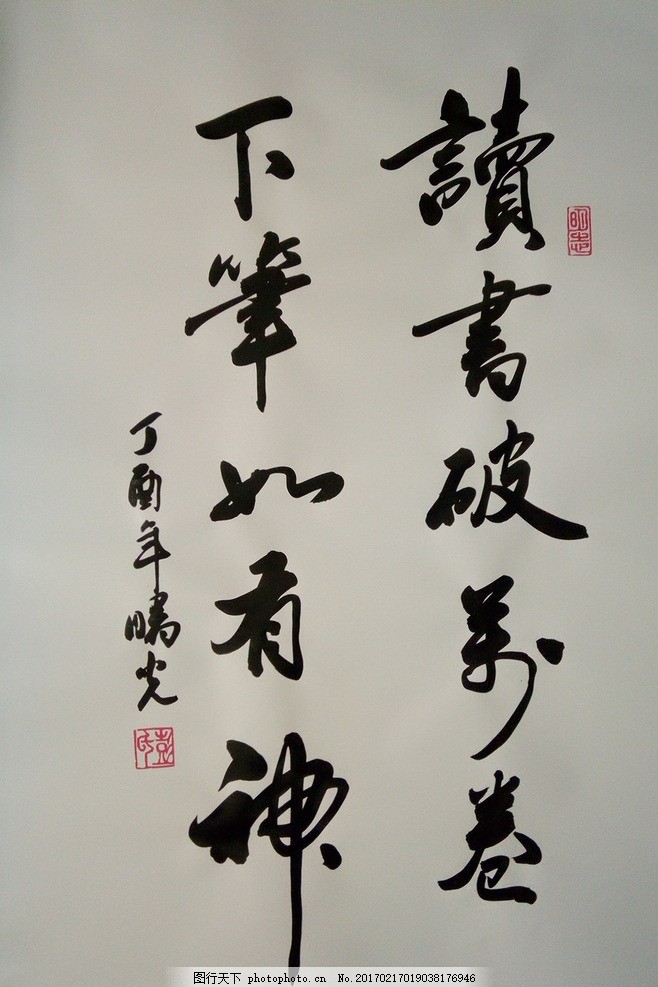 讀書破萬卷
下筆如有神
丁酉年曉光
彭氏
图行天下 photophoto.cn No.20170217019038176946